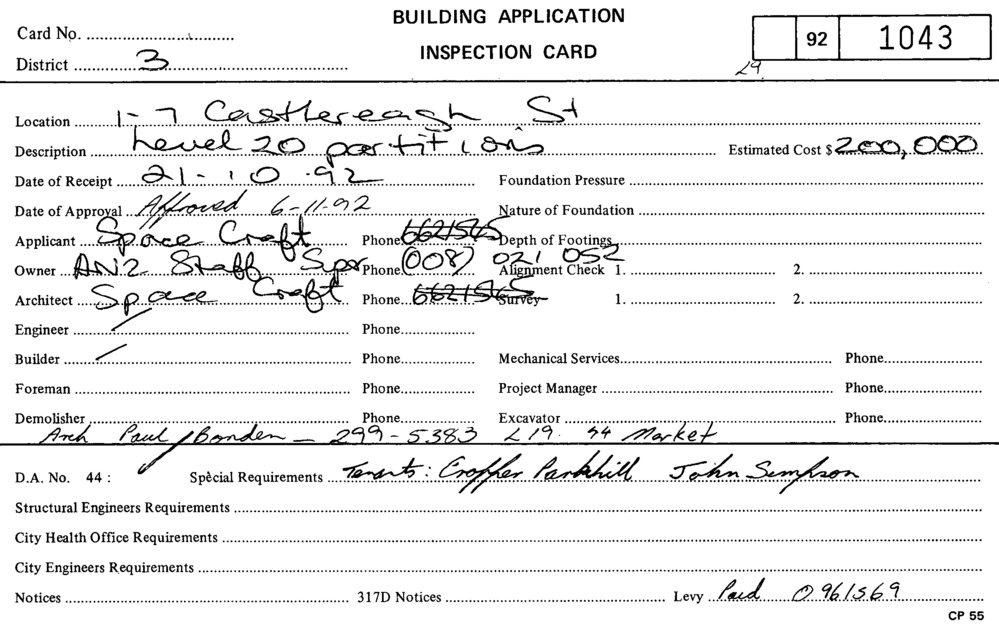 BUILDING APPLICATION
INSPECTION CARD
Card No.
District 3
92 1043
L9
Location 1-7 Castlereagh St
Description Level 20 partitions Estimated Cost $ 200,000
Date of Receipt 21-10-92 Foundation Pressure
Date of Approval Approved 6-11-92 Nature of Foundation
Applicant Space Craft Phone 6621565 Depth of Footings
Owner ANZ Staff Super Phone (008) 021 052 Alignment Check 1. 2.
Architect Space Craft Phone 6621565 Survey 1. 2.
Engineer Phone
Builder Phone Mechanical Services Phone
Foreman Phone Project Manager Phone
Demolisher Phone Excavator Phone
Arch Paul Bonden - 299-5383 L19. 44 Market
D.A. No. 44 : Special Requirements Tenants: Cropper Parkhill John Simpson
Structural Engineers Requirements
City Health Office Requirements
City Engineers Requirements
Notices 317D Notices Levy Paid 0961569
CP 55